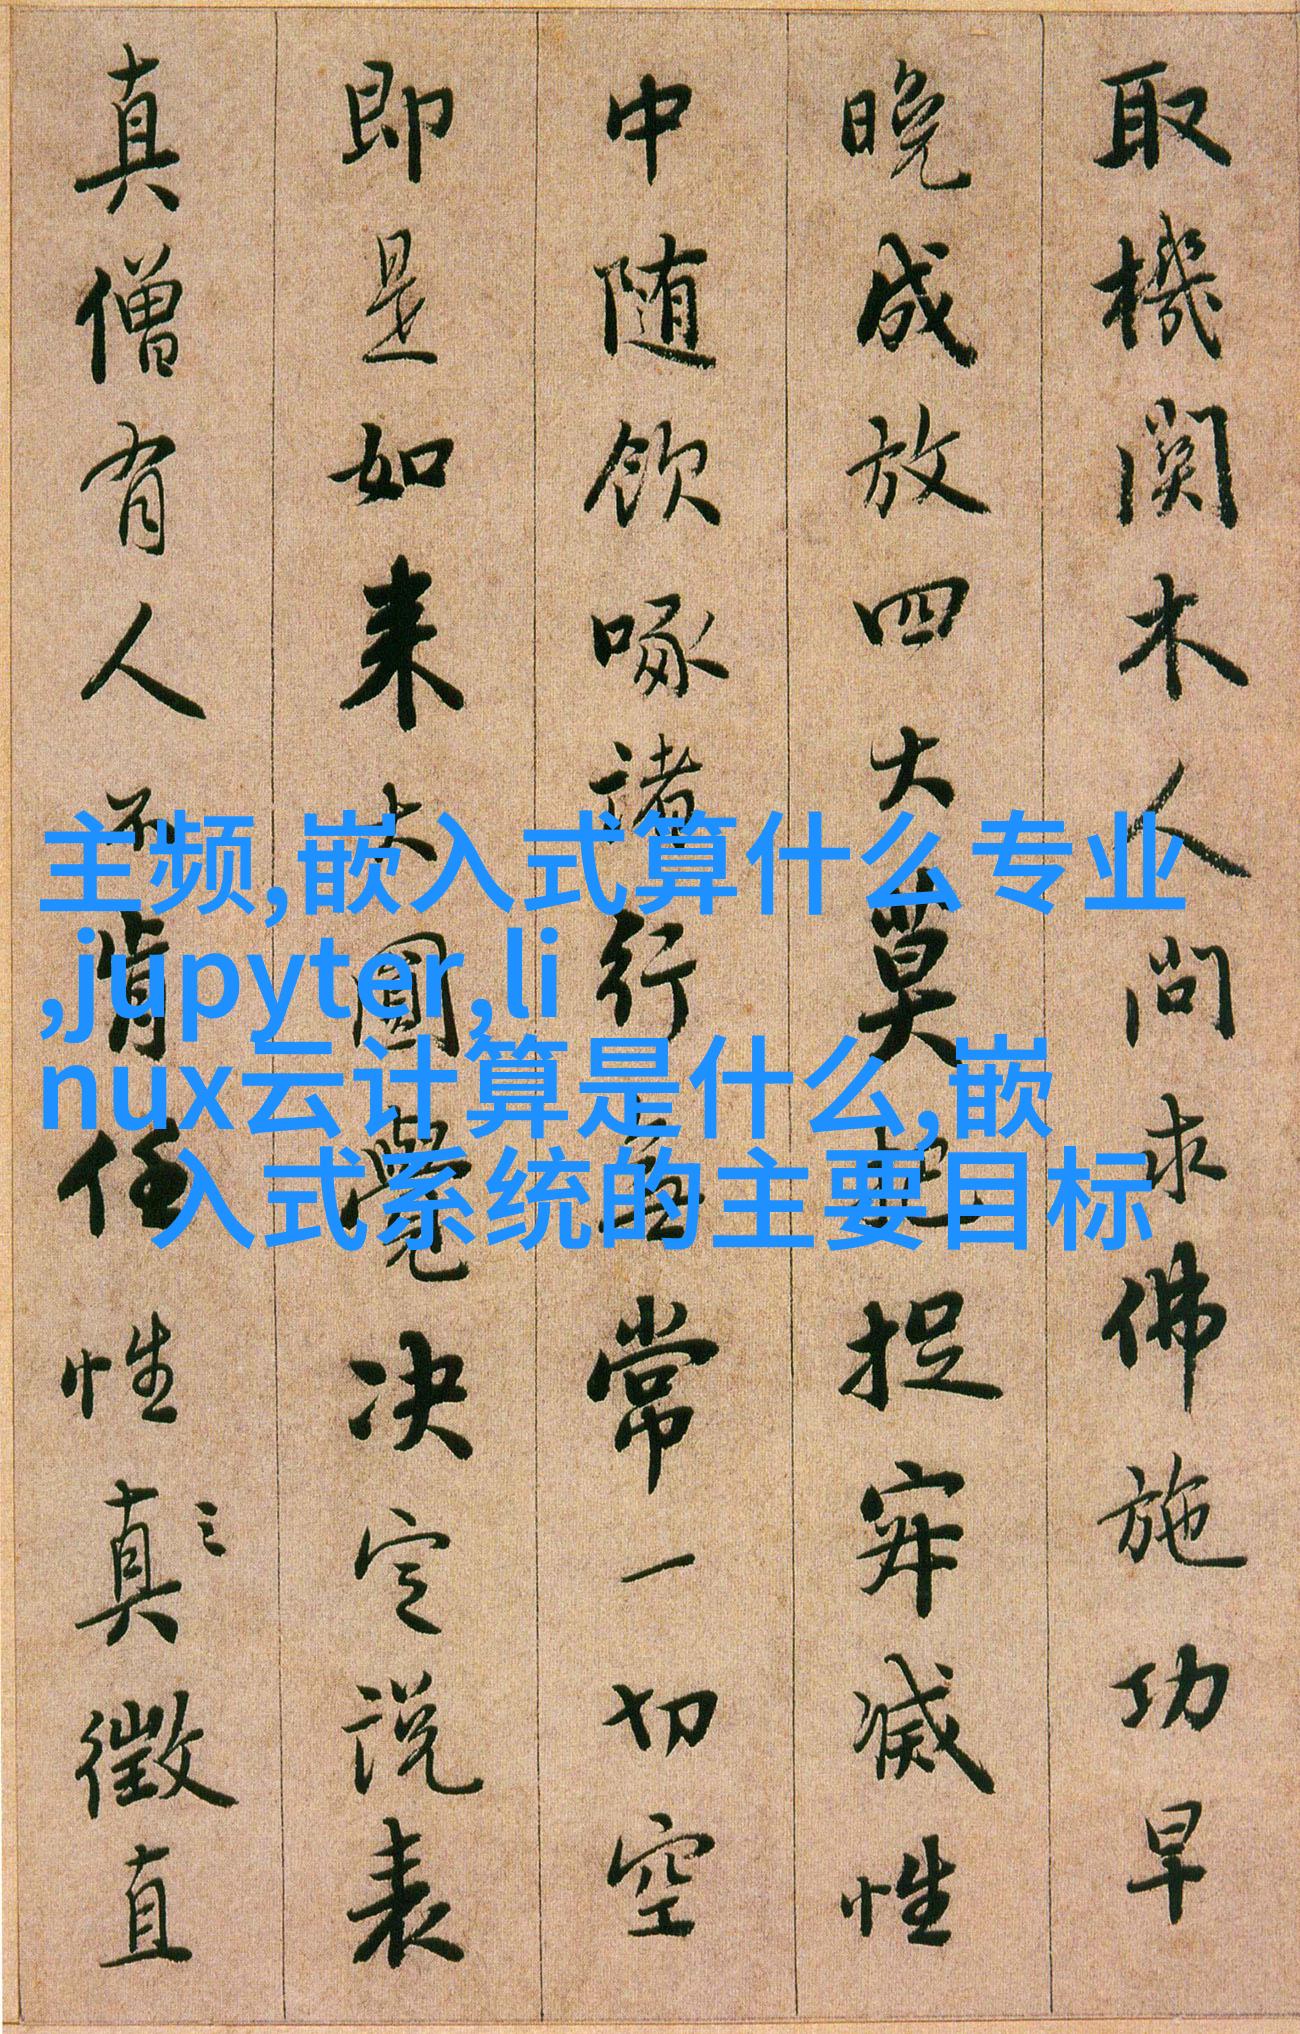 取機関木人問求佛施功早
晚成放四大莫把捉寂滅性
中随飲啄諸行無常一切空
即是如来大圓覺决定説表
真僧有人不肯任性真徵直
主频,嵌入式算什么专业
,jupyter,li
nux云计算是什么,嵌
入式系统的主要目标